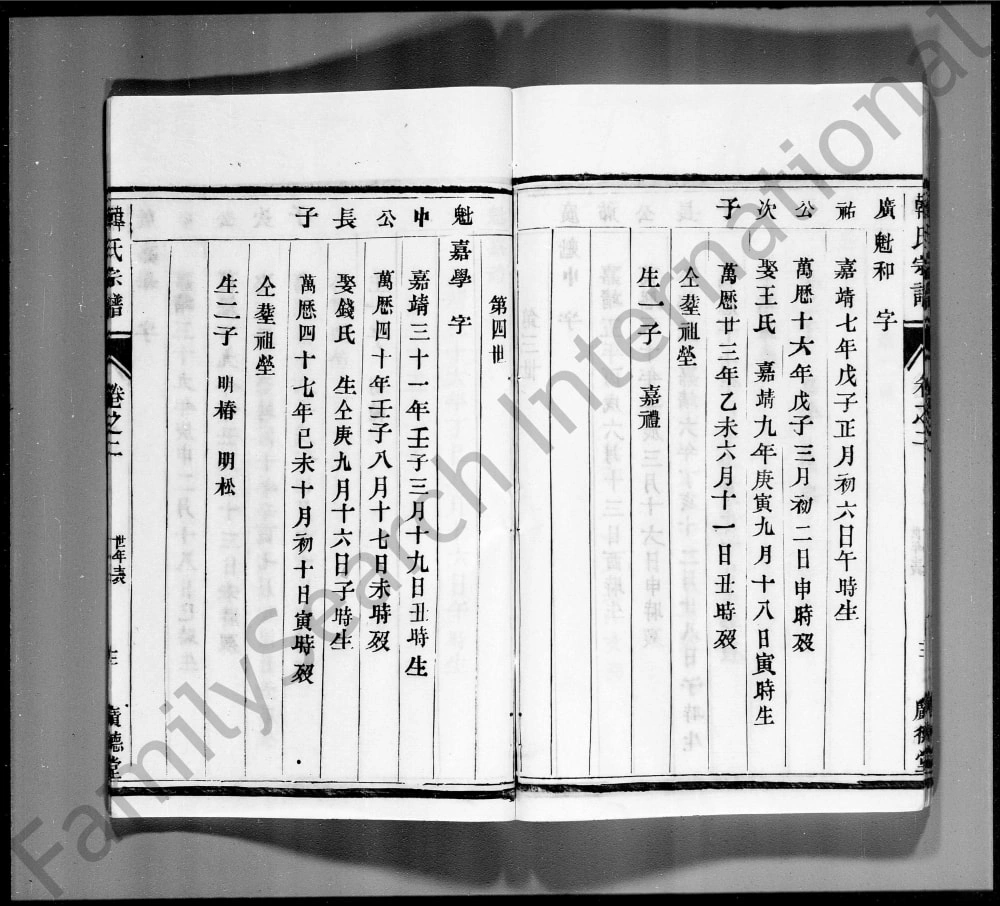 韓氏宗譜
廣魁和 字
祐 嘉靖七年戊子正月初六日午時生
公 萬歷十六年戊子三月初二日申時歿
次 娶王氏 嘉靖九年庚寅九月十八日寅時生
子 萬歷廿三年乙未六月十一日丑時歿
仝塟祖塋
生一子 嘉禮
第四世
魁嘉學 字
中 嘉靖三十一年壬子三月十九日丑時生
公 萬歷四十年壬子八月十七日未時歿
長 娶錢氏 生仝庚九月十六日子時生
子 萬歷四十七年已未十月初十日寅時歿
仝塟祖塋
生二子 明椿 明松
韓氏宗譜 卷之二 世年表 廣德堂
FamilySearch International